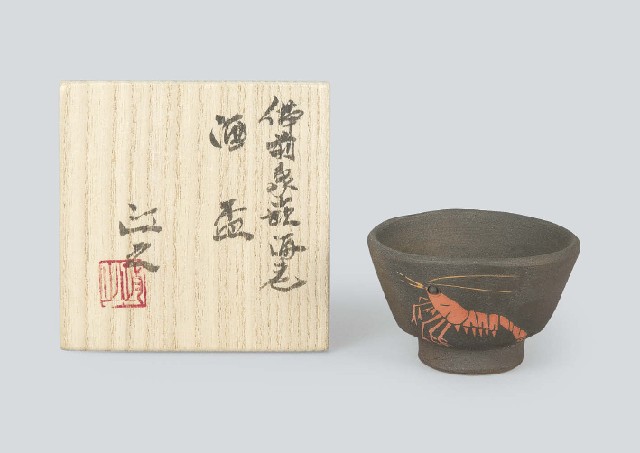 備前象嵌海老
酒盃